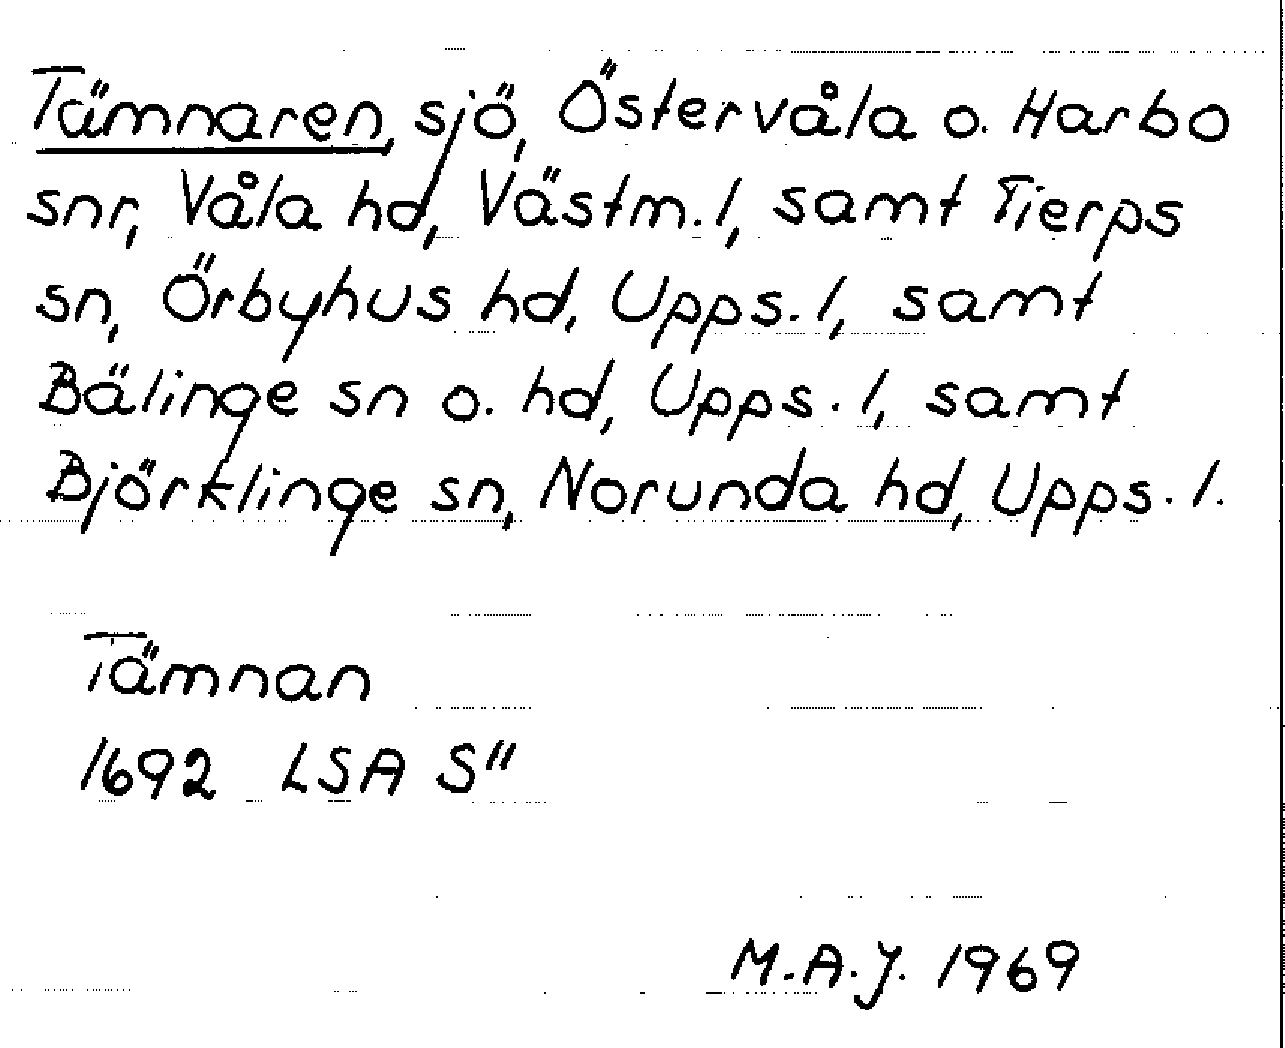 Tämnaren, sjö, Östervåla o. Harbo
snr, Våla hd, Västm. l, samt Tierps
sn, Örbyhus hd, Upps. l, samt
Bälinge sn o. hd, Upps. l, samt
Björklinge sn, Norunda hd, Upps. l.
Tämnan
1692 LSA S"
M.A.J. 1969